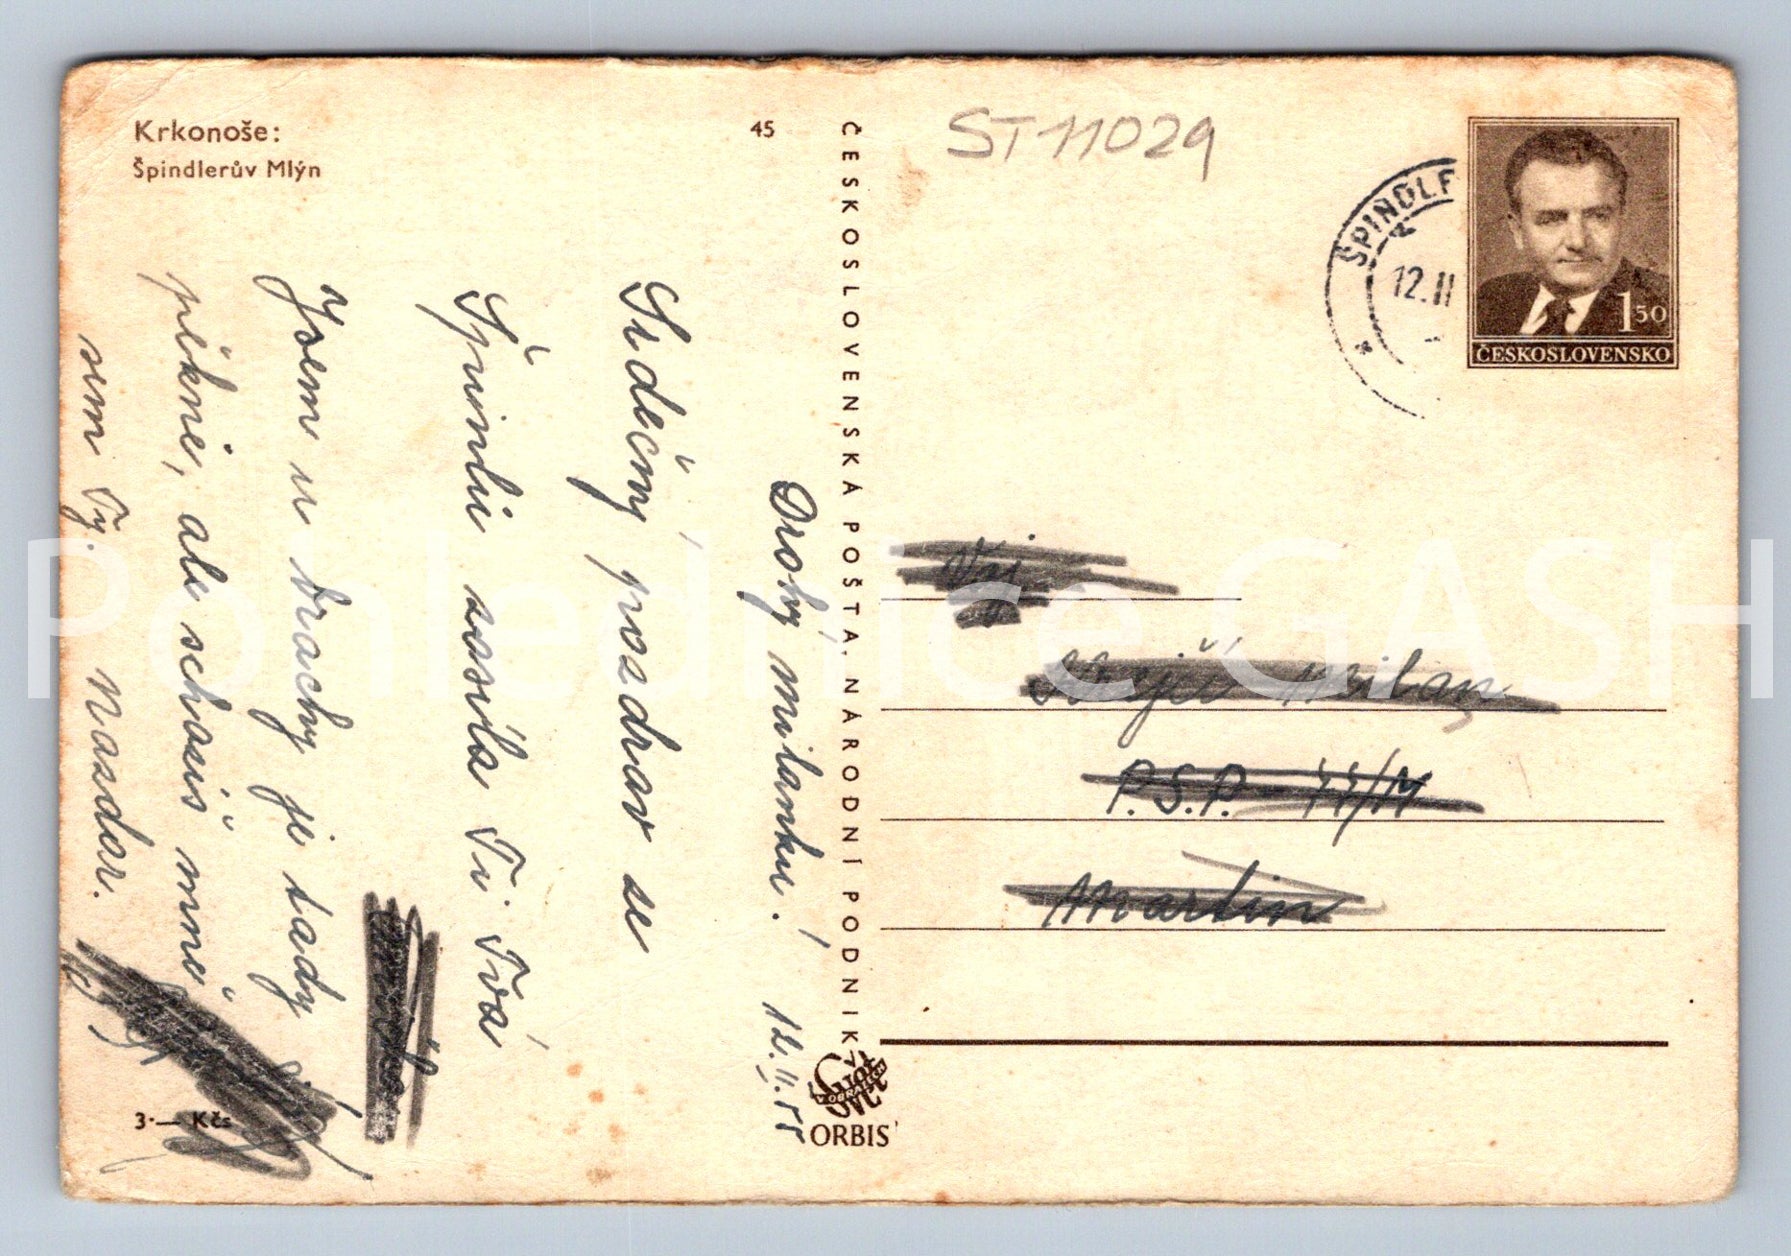 Krkonoše:
Špindlerův Mlýn
45
ČESKOSLOVENSKÁ POŠTA, NÁRODNÍ PODNIK
ST 11029
ŠPINDLE
12.II
150
ČESKOSLOVENSKO
Drahý milánku! 12.II.55
Srdečný pozdrav ze
Špindlu zasílá Ti Tvá
Jsem u brachy je tady
pěkně, ale scházíš mně
sem Ty. Nazdar.
Milan
P.S.P.
Martin
3·— Kčs
ORBIS
Pohlednice GASH